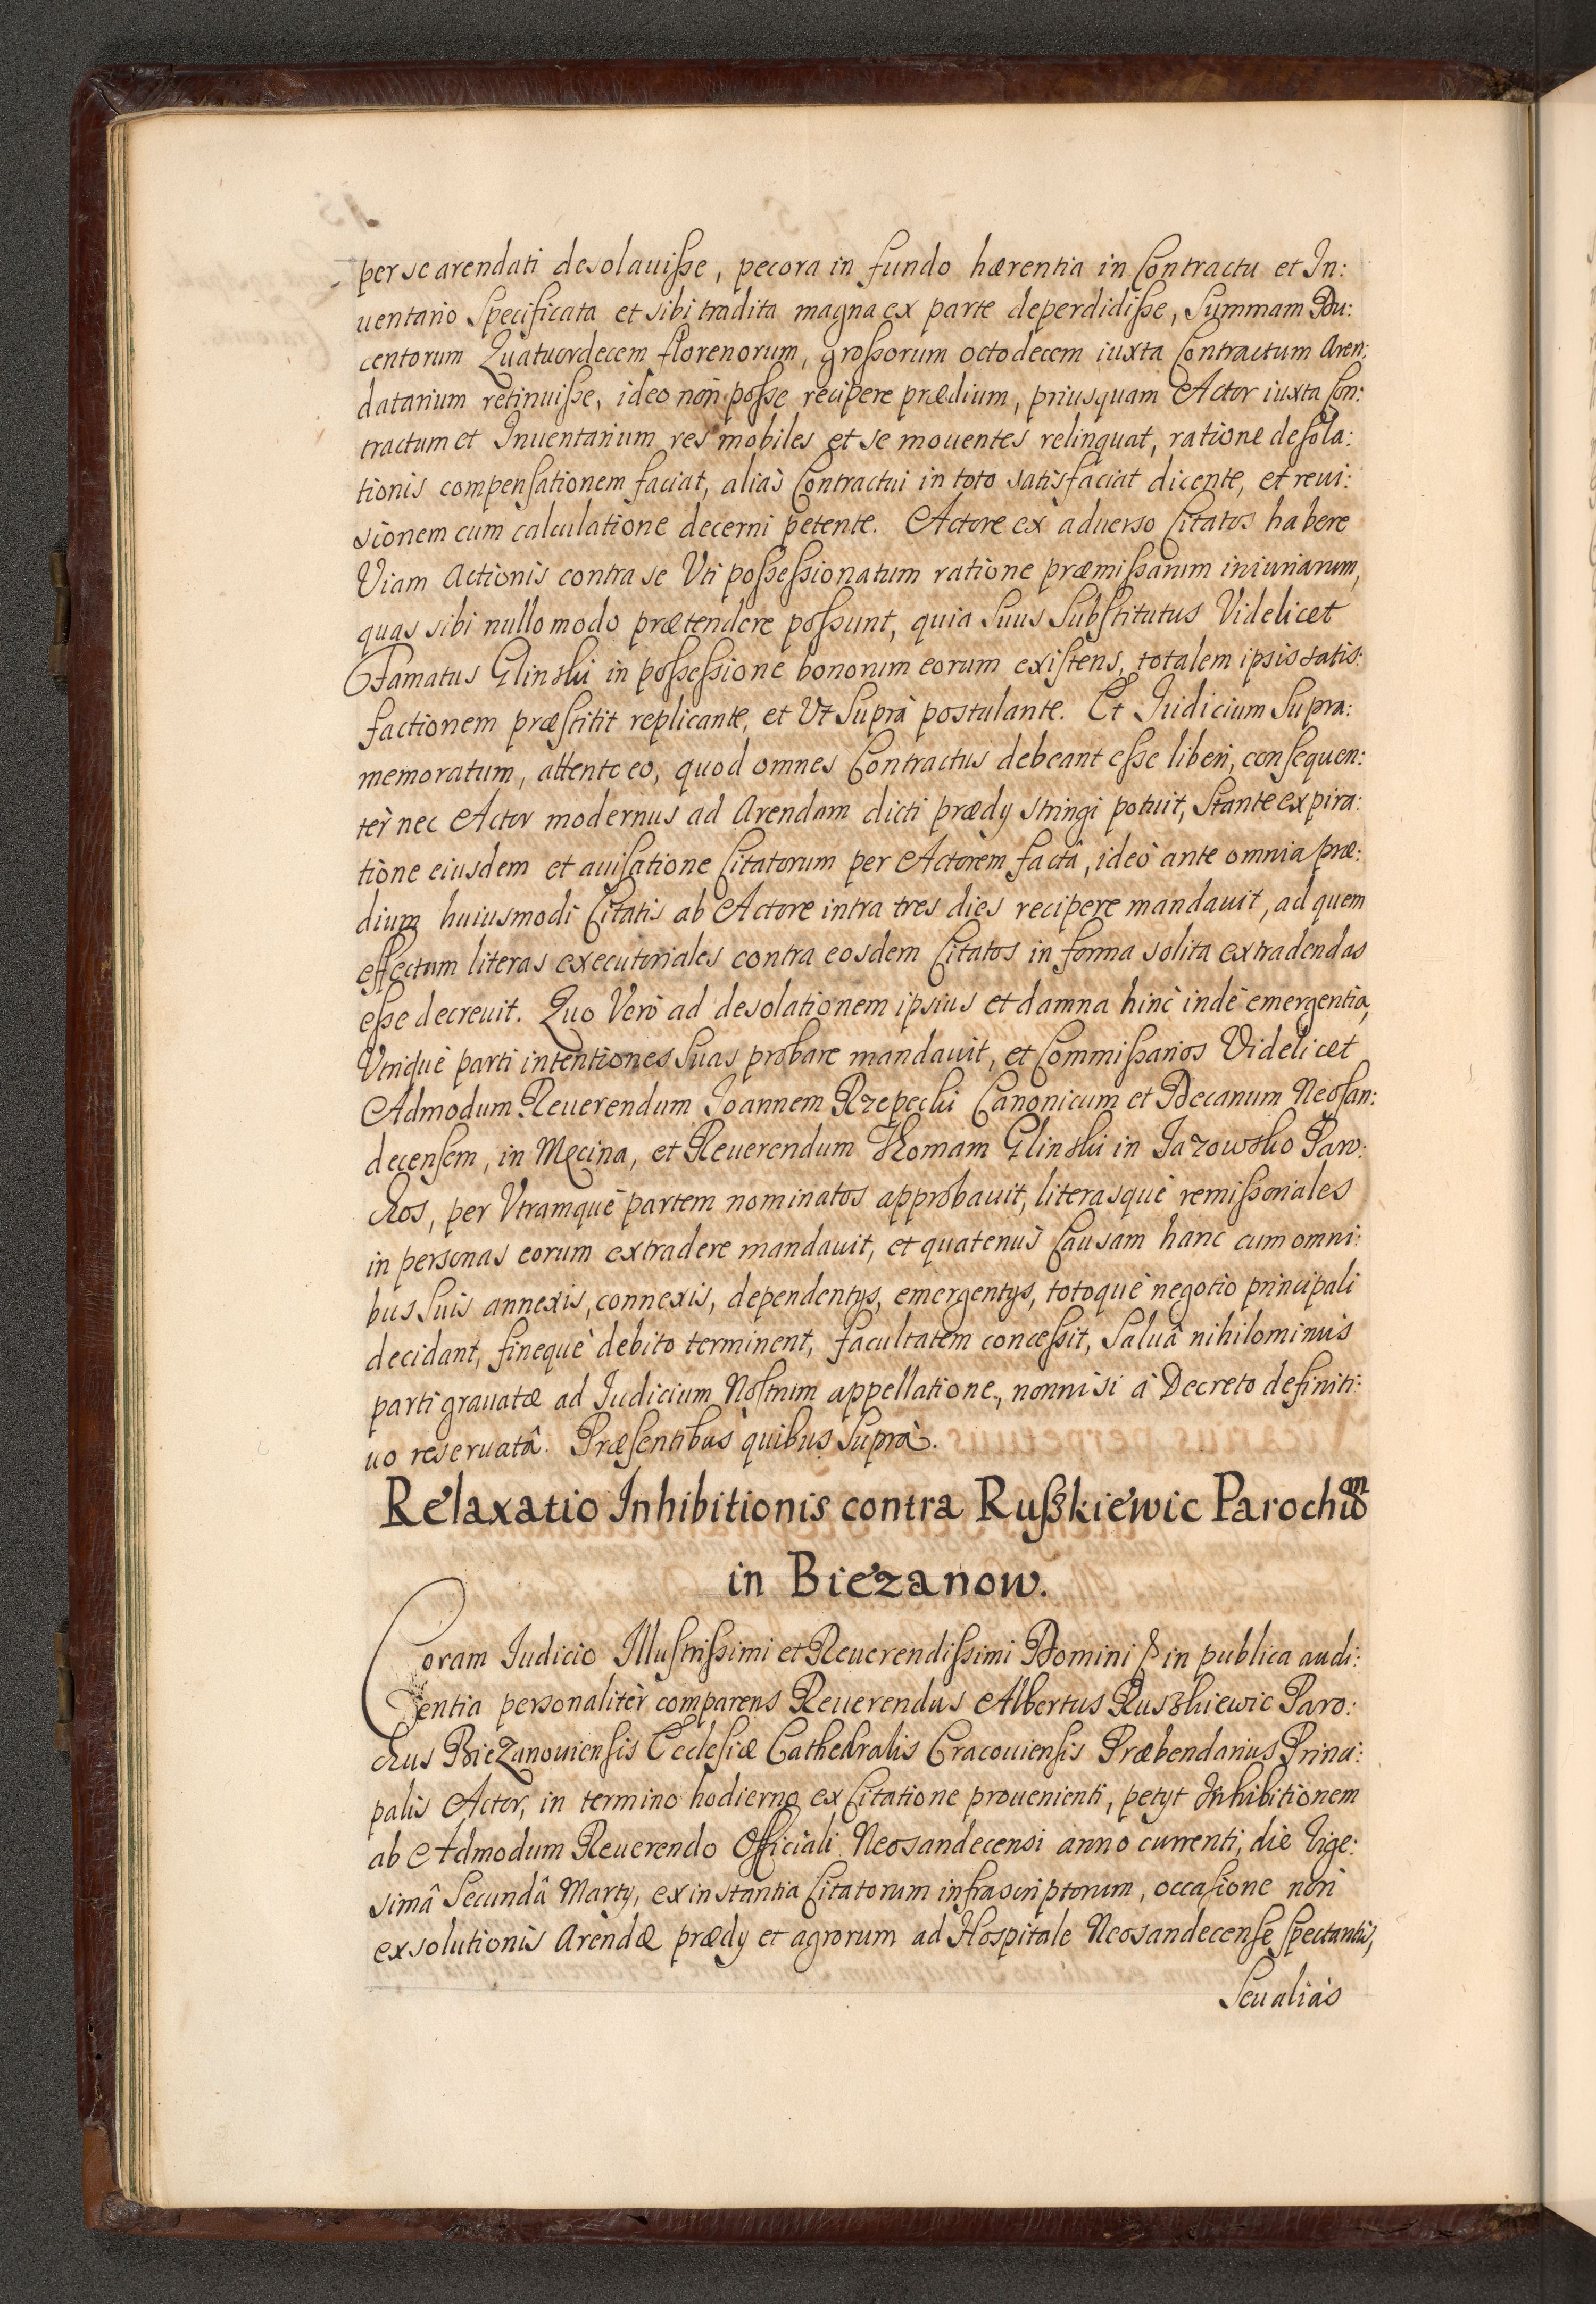 per se arendati desolauisse, pecora in fundo hærentia in Contractu et In:
uentario Specificata et sibi tradita magna ex parte deperdidisse, Summam Du:
centorum Quatuordecem florenorum, grossorum octodecem iuxta Contractum Aren:
datarium retinuisse, ideo non posse recipere prædium, priusquam Actor iuxta Con:
tractum et Inuentarium res mobiles et se mouentes relinquat, ratione desola:
tionis compensationem faciat, aliàs Contractui in toto satisfaciat dicente, et reui:
sionem cum calculatione decerni petente. Actore ex aduerso Citatos habere
Viam Actionis contra se Vti possessionatum ratione præmissarum iniuriarum,
quas sibi nullo modo prætendere possunt, quia Suus Substitutus Videlicet
Famatus Glinski in possessione bonorum eorum existens, totalem ipsis satis:
factionem præstitit replicante, et Vt Suprà postulante. Et Iudicium Supra:
memoratum, attento eo, quod omnes Contractus debeant esse liberi, consequen:
tèr nec Actor modernus ad Arendam dicti prædy stringi potuit, Stante expira:
tione eiusdem et auisatione Citatorum per Actorem factâ, ideò ante omnia præ:
dium huiusmodi Citatis ab Actore intra tres dies recipere mandauit, ad quem
effectum literas executoriales contra eosdem Citatos in forma solita extradendas
esse decreuit. Quo Verò ad desolationem ipsius et damna hinc indè emergentia,
Vtrique parti intentiones Suas probare mandauit, et Commissarios Videlicet
Admodum Reuerendum Ioannem Rzepecki Canonicum et Decanum Neosan:
decensem, in Mecina, et Reuerendum Thomam Glinski in Jazowsko Paro:
chos, per Vtramquè partem nominatos approbauit, literasquè remissoriales
in personas eorum extradere mandauit, et quatenùs Causam hanc cum omni:
bus Suis annexis, connexis, dependentys, emergentys, totoquè negotio principali
decidant, finequè debito terminent, facultatem concessit, Saluâ nihilominùs
parti grauatæ ad Iudicium Nostrum appellatione, nonnisi à Decreto definiti:
uo reseruatâ. Præsentibus quibus Suprà.
Relaxatio Inhibitionis contra Rußkiewic Parochũm
in Biezanow.
Coram Iudicio Illustrissimi et Reuerendissimi Domini & in publica audi:
entia personalitèr comparens Reuerendus Albertus Ruszkiewic Paro:
chus Biezanouiensis Ecclesiæ Cathedralis Cracouiensis Præbendarius Princi:
palis Actor, in termino hodierno ex Citatione prouenienti, petyt Inhibitionem
ab Admodum Reuerendo Officiali Neosandecensi anno currenti, die Vige:
simâ Secundâ Marty, ex instantia Citatorum infrascriptorum, occasione non
exsolutionis Arendæ prædy et agrorum ad Hospitale Neosandecense spectantis,
Seu aliàs